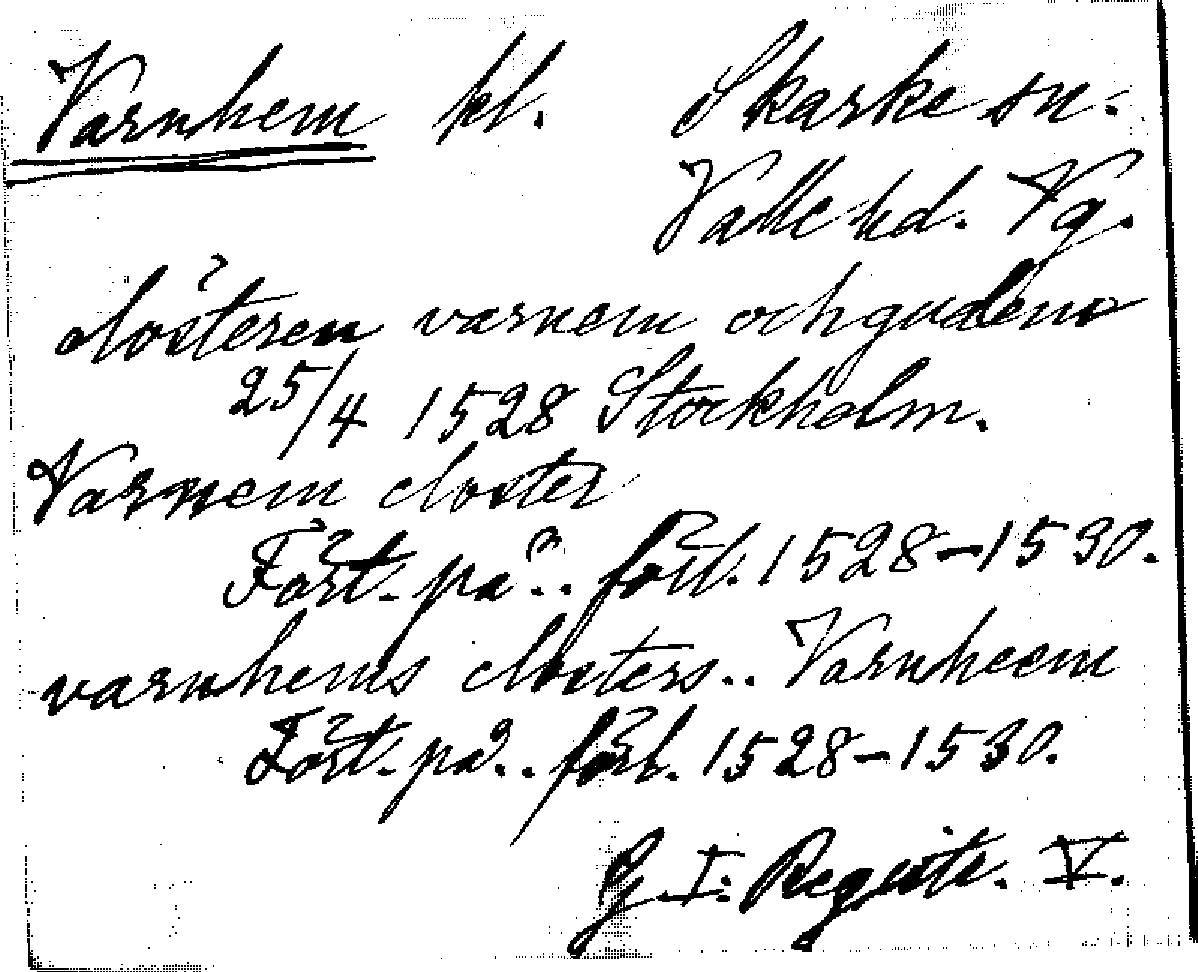 Varnhem kl. Skarke sn.
Valle hd. Vg.
clösteren varnem och gudem
25/4 1528 Stockholm.
Varnem closter
Fört. på .. förl. 1528-1530.
varnhems closters.. Varnheem
Fört. på .. förl. 1528-1530.
G. I: Registr. V.